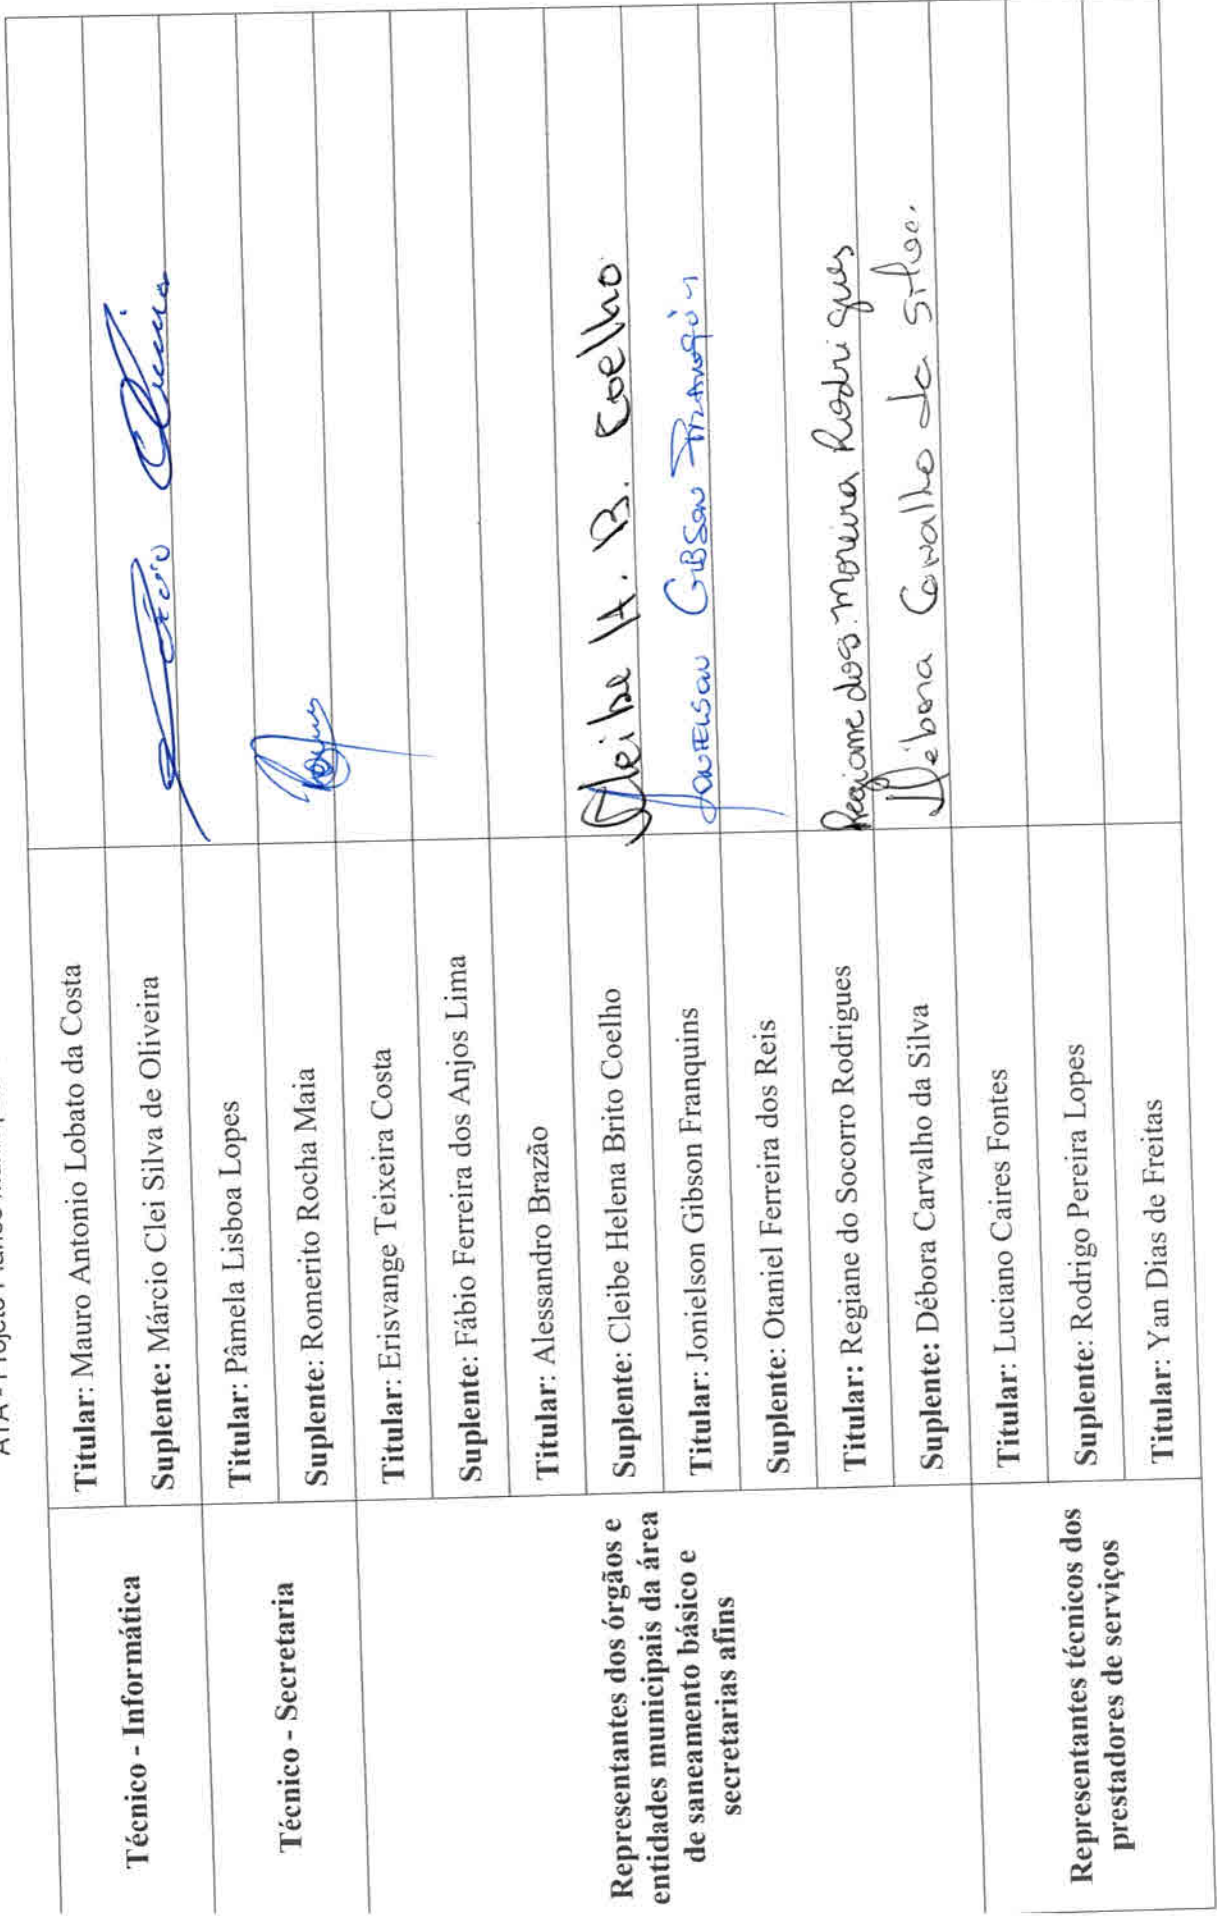 Técnico - Informática
Titular: Mauro Antonio Lobato da Costa
Suplente: Márcio Clei Silva de Oliveira
Técnico - Secretaria
Titular: Pâmela Lisboa Lopes
Suplente: Romerito Rocha Maia
Representantes dos órgãos e
entidades municipais da área
de saneamento básico e
secretarias afins
Titular: Erisvange Teixeira Costa
Suplente: Fábio Ferreira dos Anjos Lima
Titular: Alessandro Brazão
Suplente: Cleibe Helena Brito Coelho
Cleibe H. B. Coelho
Titular: Jonielson Gibson Franquins
Jonielson Gibson
Suplente: Otaniel Ferreira dos Reis
Titular: Regiane do Socorro Rodrigues
Regiane dos Moreira Rodrigues
Suplente: Débora Carvalho da Silva
Débora Carvalho da Silva.
Representantes técnicos dos
prestadores de serviços
Titular: Luciano Caires Fontes
Suplente: Rodrigo Pereira Lopes
Titular: Yan Dias de Freitas